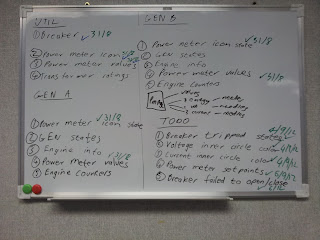 UTIL
① Breaker ✓31/8
② Power meter icon
③ Power meter values
④ Transformer ratings
GEN A
① Power meter icon state ✓31/8
② GEN states
③ Engine info
④ Power meter values ✓31/8
⑤ Engine counters
GEN B
① Power meter icon state ✓31/8
② GEN states
③ Engine info
④ Power meter values ✓31/8
⑤ Engine counters
values
needles
TODO
① Breaker tripped
② Voltage inner circle color
③ Current inner circle color
④ Power meter setpoints
⑤ Breaker failed to open/close